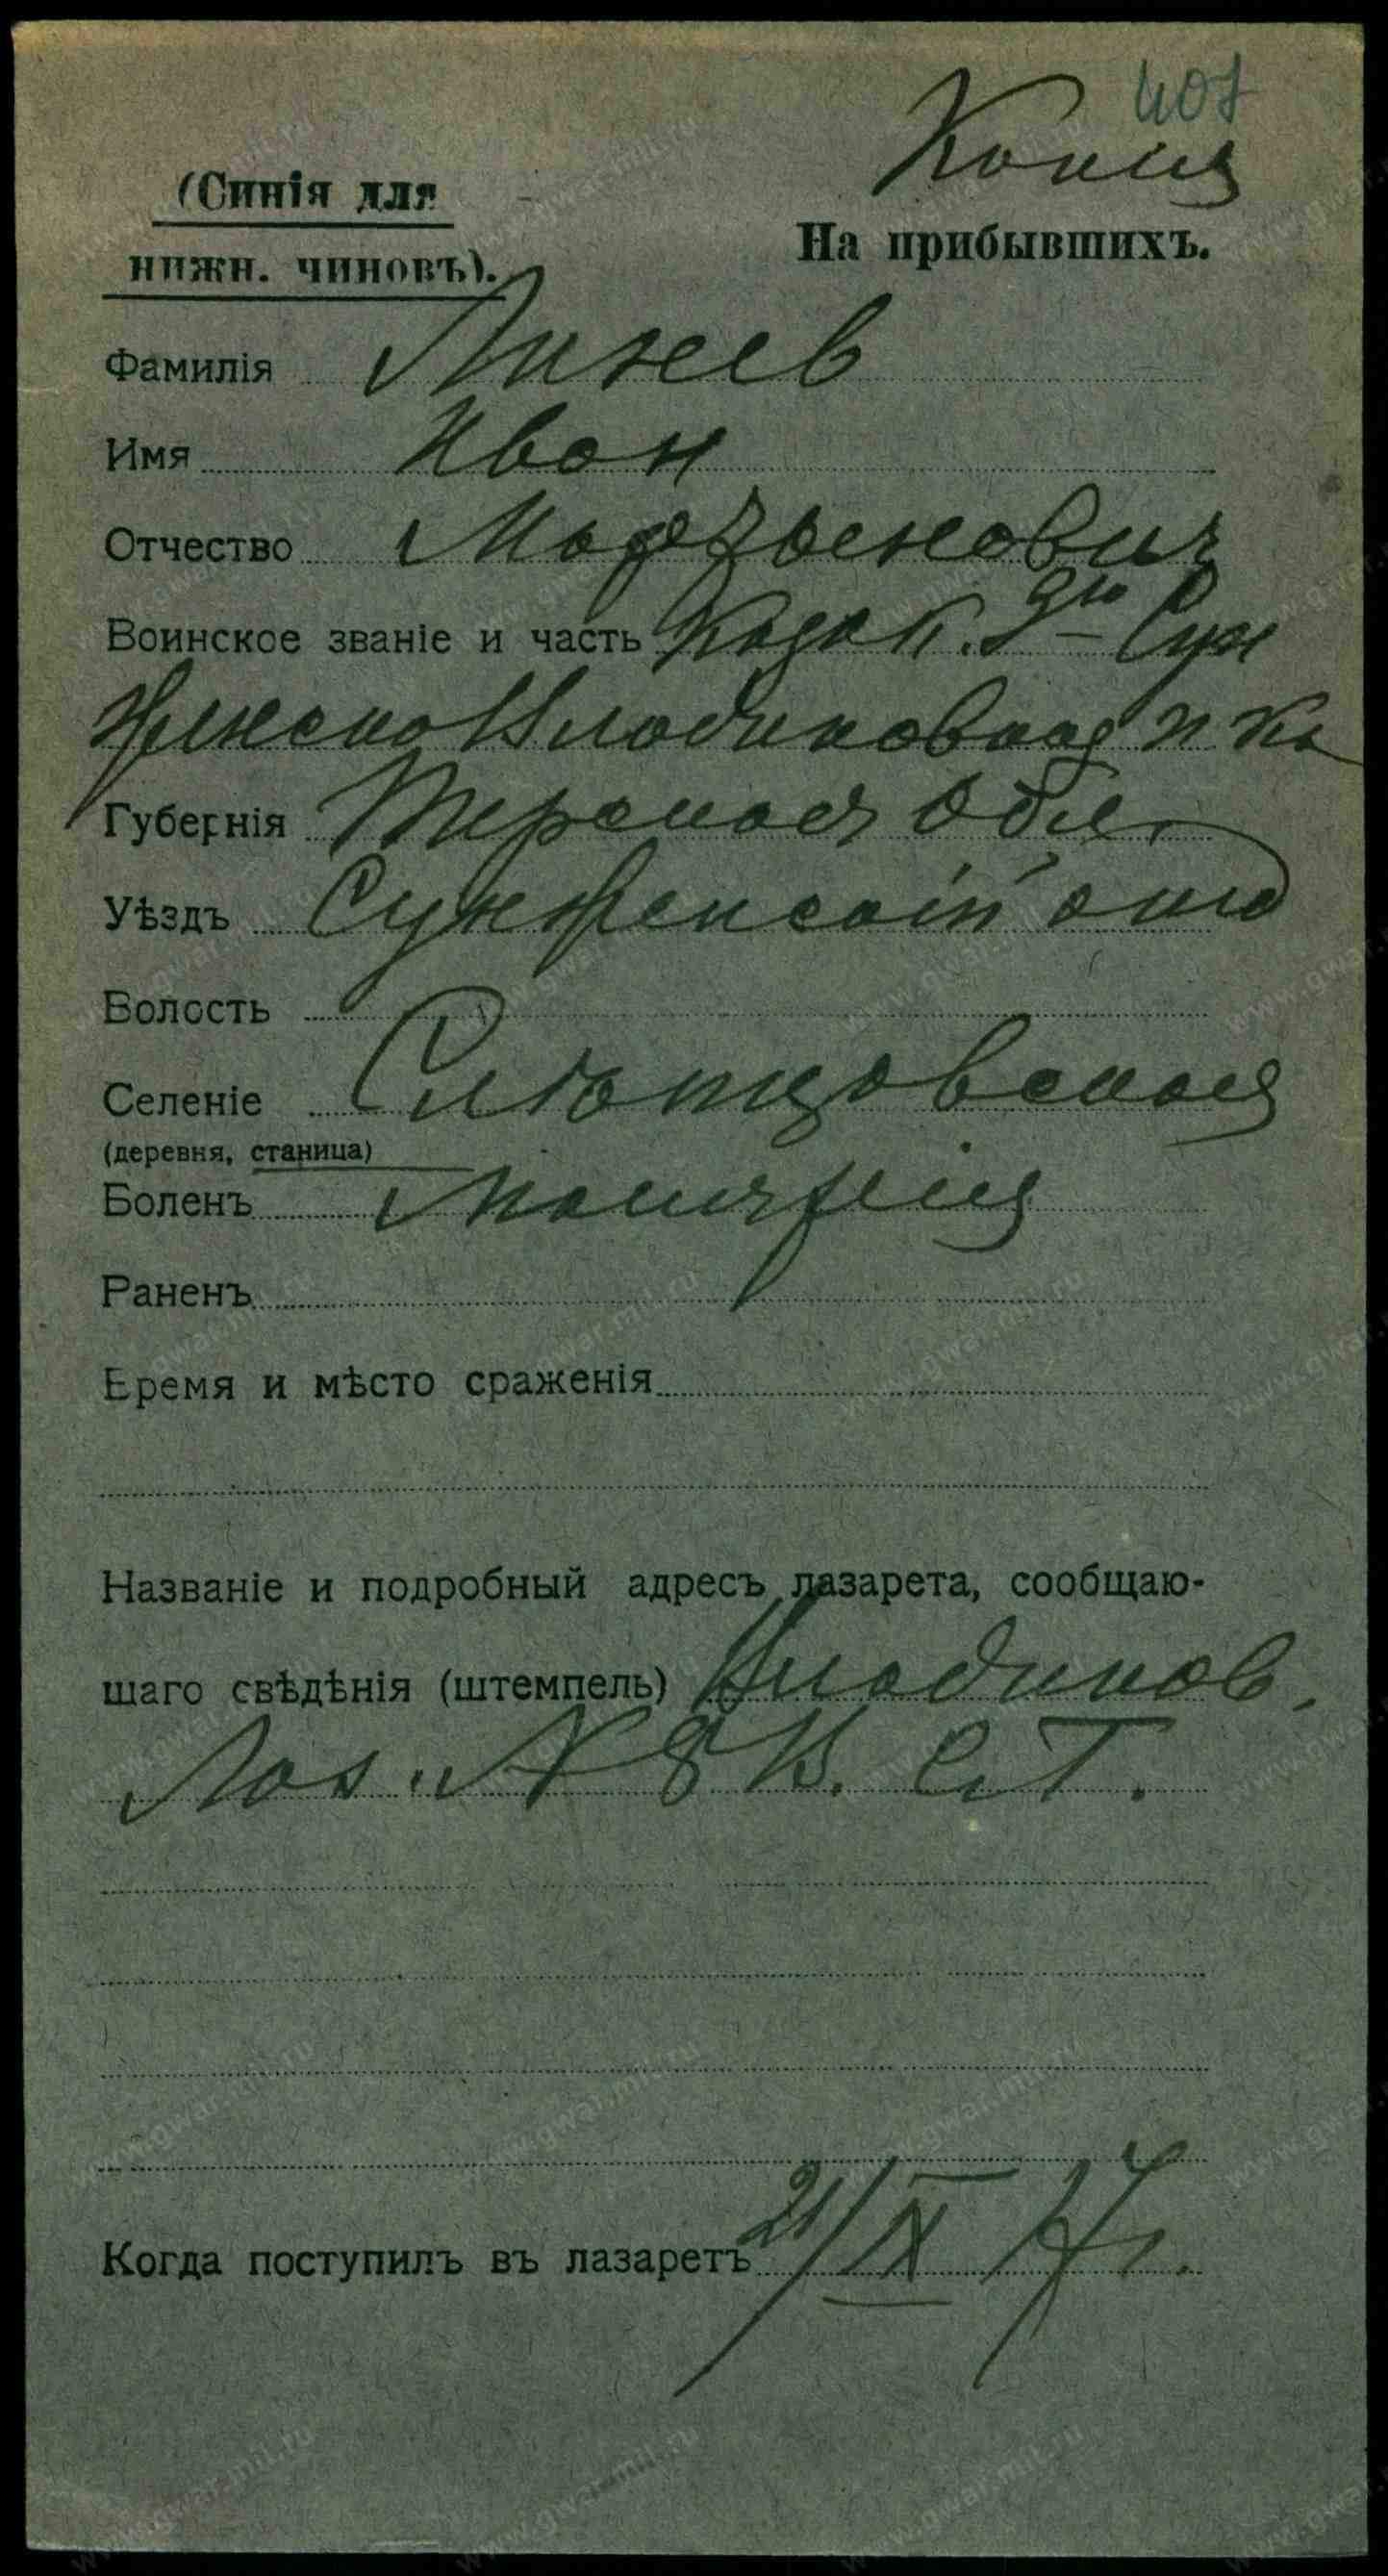 407
Копия
(Синія для
нижн. чиновъ).
На прибывшихъ.
Фамилія Линев
Имя Иван
Отчество
Воинское званіе и часть Казак. 2й Сун
женско Владикавказ п Ка
Губернія Терская Обл.
Уѣздъ Сунженскій отд
Волость
Селеніе Слепцовская
(деревня, станица)
Боленъ Малярія
Раненъ
Время и мѣсто сраженія
Названіе и подробный адресъ лазарета, сообщаю-
шаго свѣдѣнія (штемпель) Владикав.
Лаз. № 8 В. С. Г.
Когда поступилъ въ лазаретъ 21/IX 17 г.